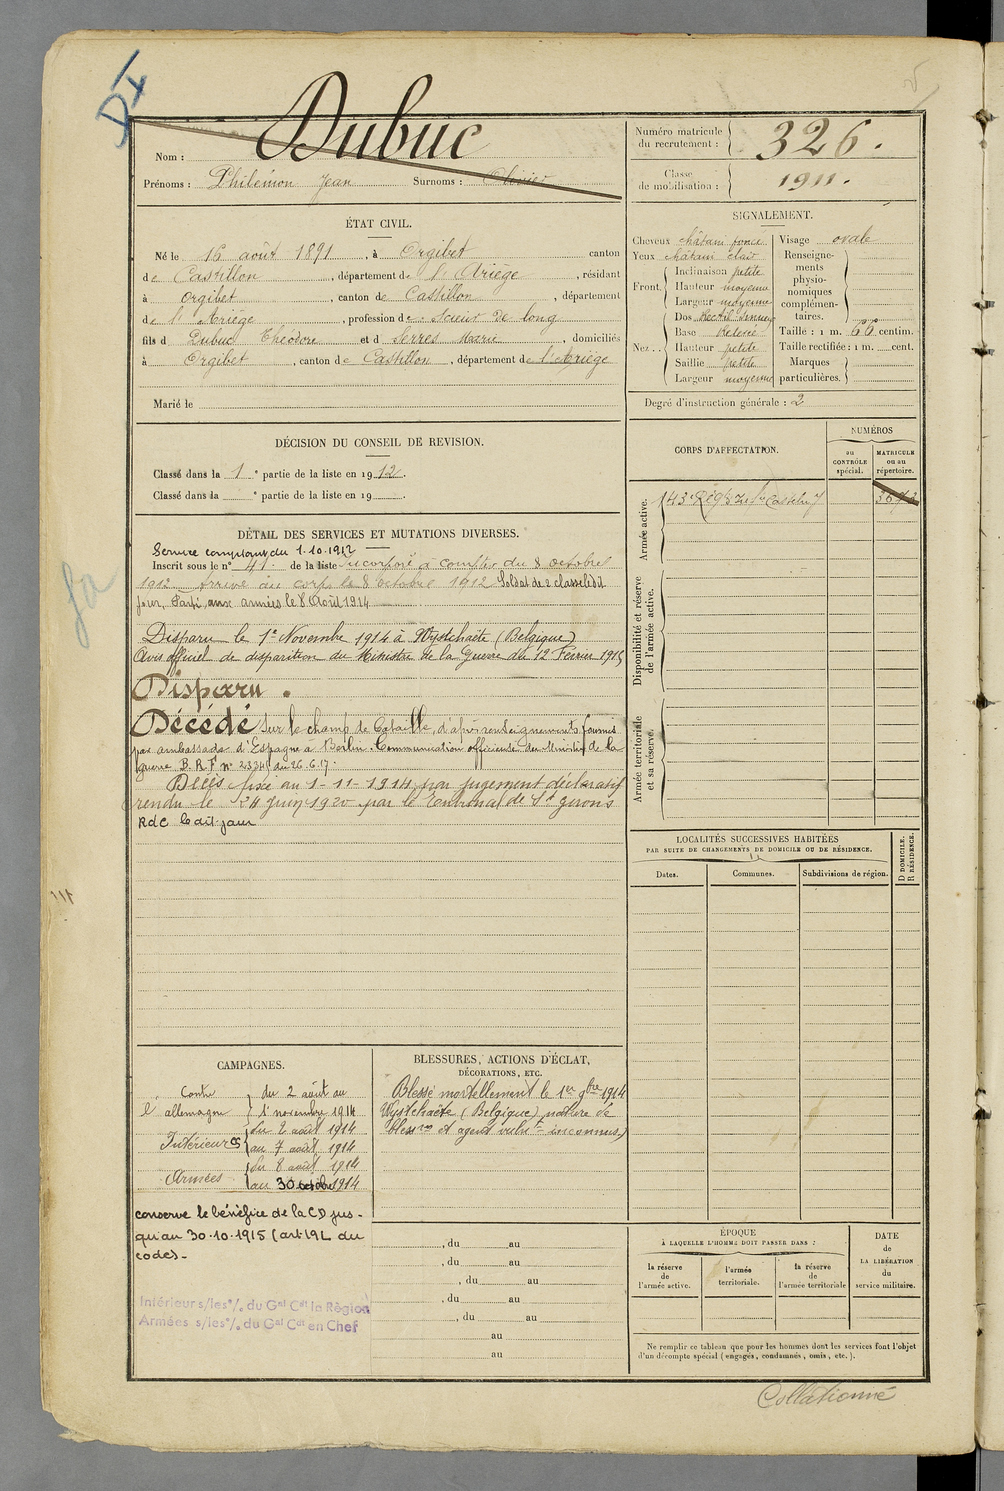 DX
Dubuc
Nom :
Prénoms : Philémon Jean Surnoms : Olivier
Numéro matricule
du recrutement :
326.
Classe
de mobilisation :
1911.
ÉTAT CIVIL.
Né le 16 août 1891, à Orgibet canton
de Castillon, département de l'Ariège, résidant
à Orgibet, canton de Castillon, département
de l'Ariège, profession de scieur de long
fils d Dubuc Théodore et d Serres Marie, domiciliés
à Orgibet, canton de Castillon, département de l'Ariège
Marié le
SIGNALEMENT.
Cheveux châtain foncé
Yeux châtain clair
Front. Inclinaison petite
Hauteur moyenne
Largeur moyenne
Nez .. Dos Rectil. sinueux
Base Relevée
Hauteur petite
Saillie petite
Largeur moyenne
Visage ovale
Renseigne-
ments
physio-
nomiques
complémen-
taires.
Taille : 1 m. 66 centim.
Taille rectifiée : 1 m. cent.
Marques
particulières.
Degré d'instruction générale : 2
DÉCISION DU CONSEIL DE REVISION.
Classé dans la 1e partie de la liste en 1912.
Classé dans la e partie de la liste en 19 .
CORPS D'AFFECTATION.
NUMÉROS
au
CONTRÔLE
spécial.
MATRICULE
ou au
répertoire.
Armée active.
143e Rég. d'Inf.ie Casteln.y
Disponibilité et réserve
de l'armée active.
Armée territoriale
et sa réserve.
DÉTAIL DES SERVICES ET MUTATIONS DIVERSES.
Service comptant du 1.10.1912
Inscrit sous le n° 41 de la liste Incorporé à compter du 8 octobre
1912 Arrivé au corps le 8 octobre 1912 Soldat de 2 classe ledit
jour, Parti aux armées le 8 Août 1914
Disparu le 1er Novembre 1914 à Wystchaëte (Belgique)
Avis officiel de disparition du Ministre de la Guerre du 12 Février 1915
Disparu.
Décédé sur le champ de bataille, d'après renseignements fournis
par ambassade d'Espagne à Berlin. Communication officieuse du Ministre de la
guerre B.R.F n° 23341 du 26.6.17.
Décès fixé au 1-11-1914 par jugement déclaratif
rendu le 24 juin 1920 par le Tribunal de St girons
RdC le dit jour
LOCALITÉS SUCCESSIVES HABITÉES
PAR SUITE DE CHANGEMENTS DE DOMICILE OU DE RÉSIDENCE.
Dates.
Communes.
Subdivisions de région.
D DOMICILE.
R RÉSIDENCE.
CAMPAGNES.
Contre
l'allemagne
du 2 août au
1er novembre 1914
Intérieur CS
du 2 août 1914
au 7 août 1914
Armées
du 8 août 1914
au 30 octobre 1914
conserve le bénéfice de la CD jus-
qu'au 30.10.1915 (art 19L du
codes-
Intérieur s/les °/. du Gal Cdt la Région
Armées s/les °/. du Gal Cdt en Chef
BLESSURES, ACTIONS D'ÉCLAT,
DÉCORATIONS, ETC.
Blessé mortellement le 1er 9bre 1914
Wystchaëte (Belgique) nature de
bless.res et agent vuln.t inconnus)
, du au
, du au
, du au
, du au
, du au
au
au
ÉPOQUE
À LAQUELLE L'HOMME DOIT PASSER DANS :
la réserve
de
l'armée active.
l'armée
territoriale.
la réserve
de
l'armée territoriale
DATE
de
LA LIBÉRATION
du
service militaire.
Ne remplir ce tableau que pour les hommes dont les services font l'objet
d'un décompte spécial (engagés, condamnés, omis, etc.).
Collationné